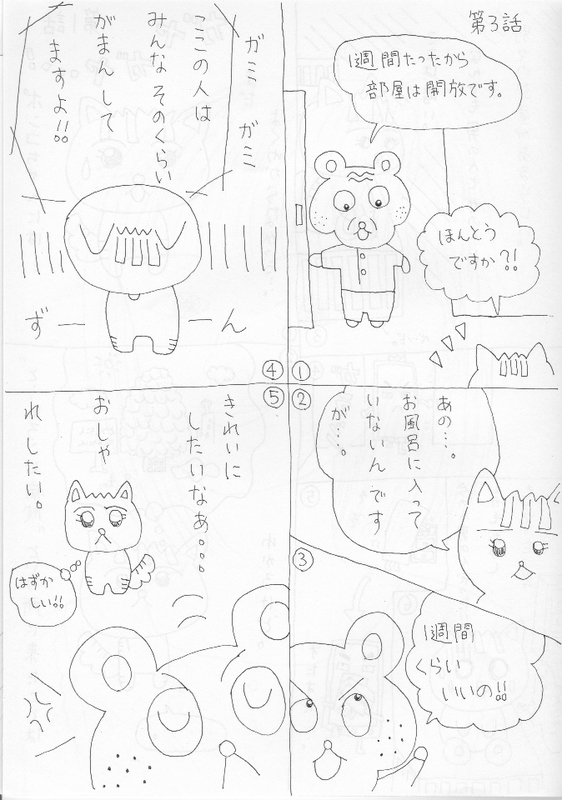 第3話
①
1週間たったから
部屋は開放です。
ほんとう
ですか?!
②
あの…。
お風呂に入って
いないんです
が…。
③
1週間
くらい
いいの!!
④
ガミ
ガミ
ここの人は
みんなそのくらい
がまんして
ますよ!!
ずーーん
⑤
きれいに
したいなあ。。。
おしゃ
れしたい。
はずか
しい!!